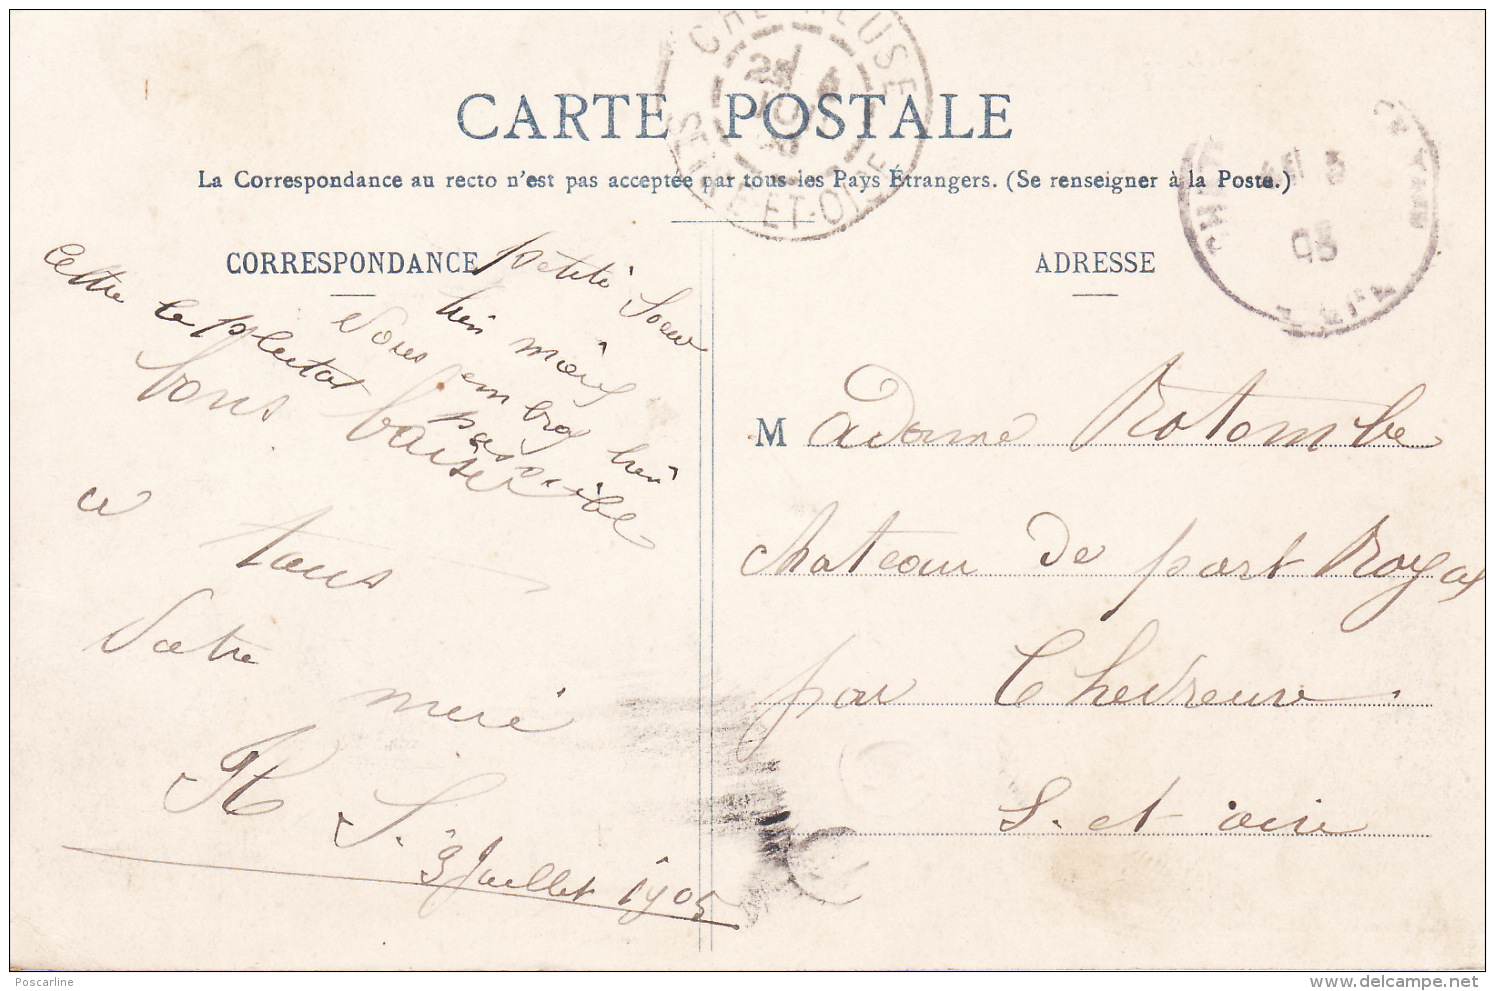 CARTE POSTALE
La Correspondance au recto n'est pas acceptée par tous les Pays Étrangers. (Se renseigner à la Poste.)
CORRESPONDANCE
ADRESSE
CHEVREUSE
SEINE-ET-OISE
petite Soeur
bien
vous embras bien
Lettre le plutot
possible
bons baiser
a tous
Votre
mere
R S.
3 Juillet 1905
Madame Rotombe
chateau de port Royal
par Chevreuse
S. et oise
Poscarline
delcampe.net